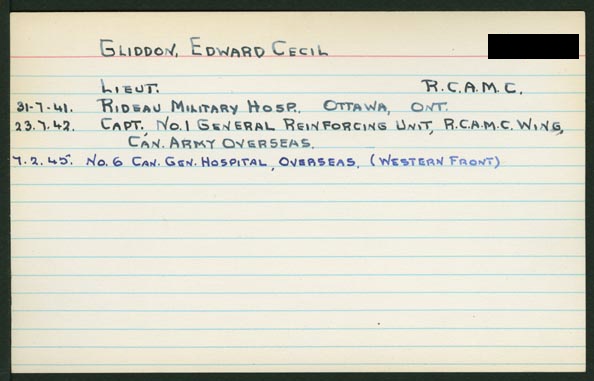 GLIDDON, EDWARD CECIL
LIEUT. R.C.A.M.C.
31-7-41. RIDEAU MILITARY HOSP. OTTAWA, ONT.
23.7.42. CAPT., NO.1 GENERAL REINFORCING UNIT, R.C.A.M.C. WING,
CAN. ARMY OVERSEAS.
7.2.45. NO. 6 CAN. GEN. HOSPITAL, OVERSEAS. (WESTERN FRONT)